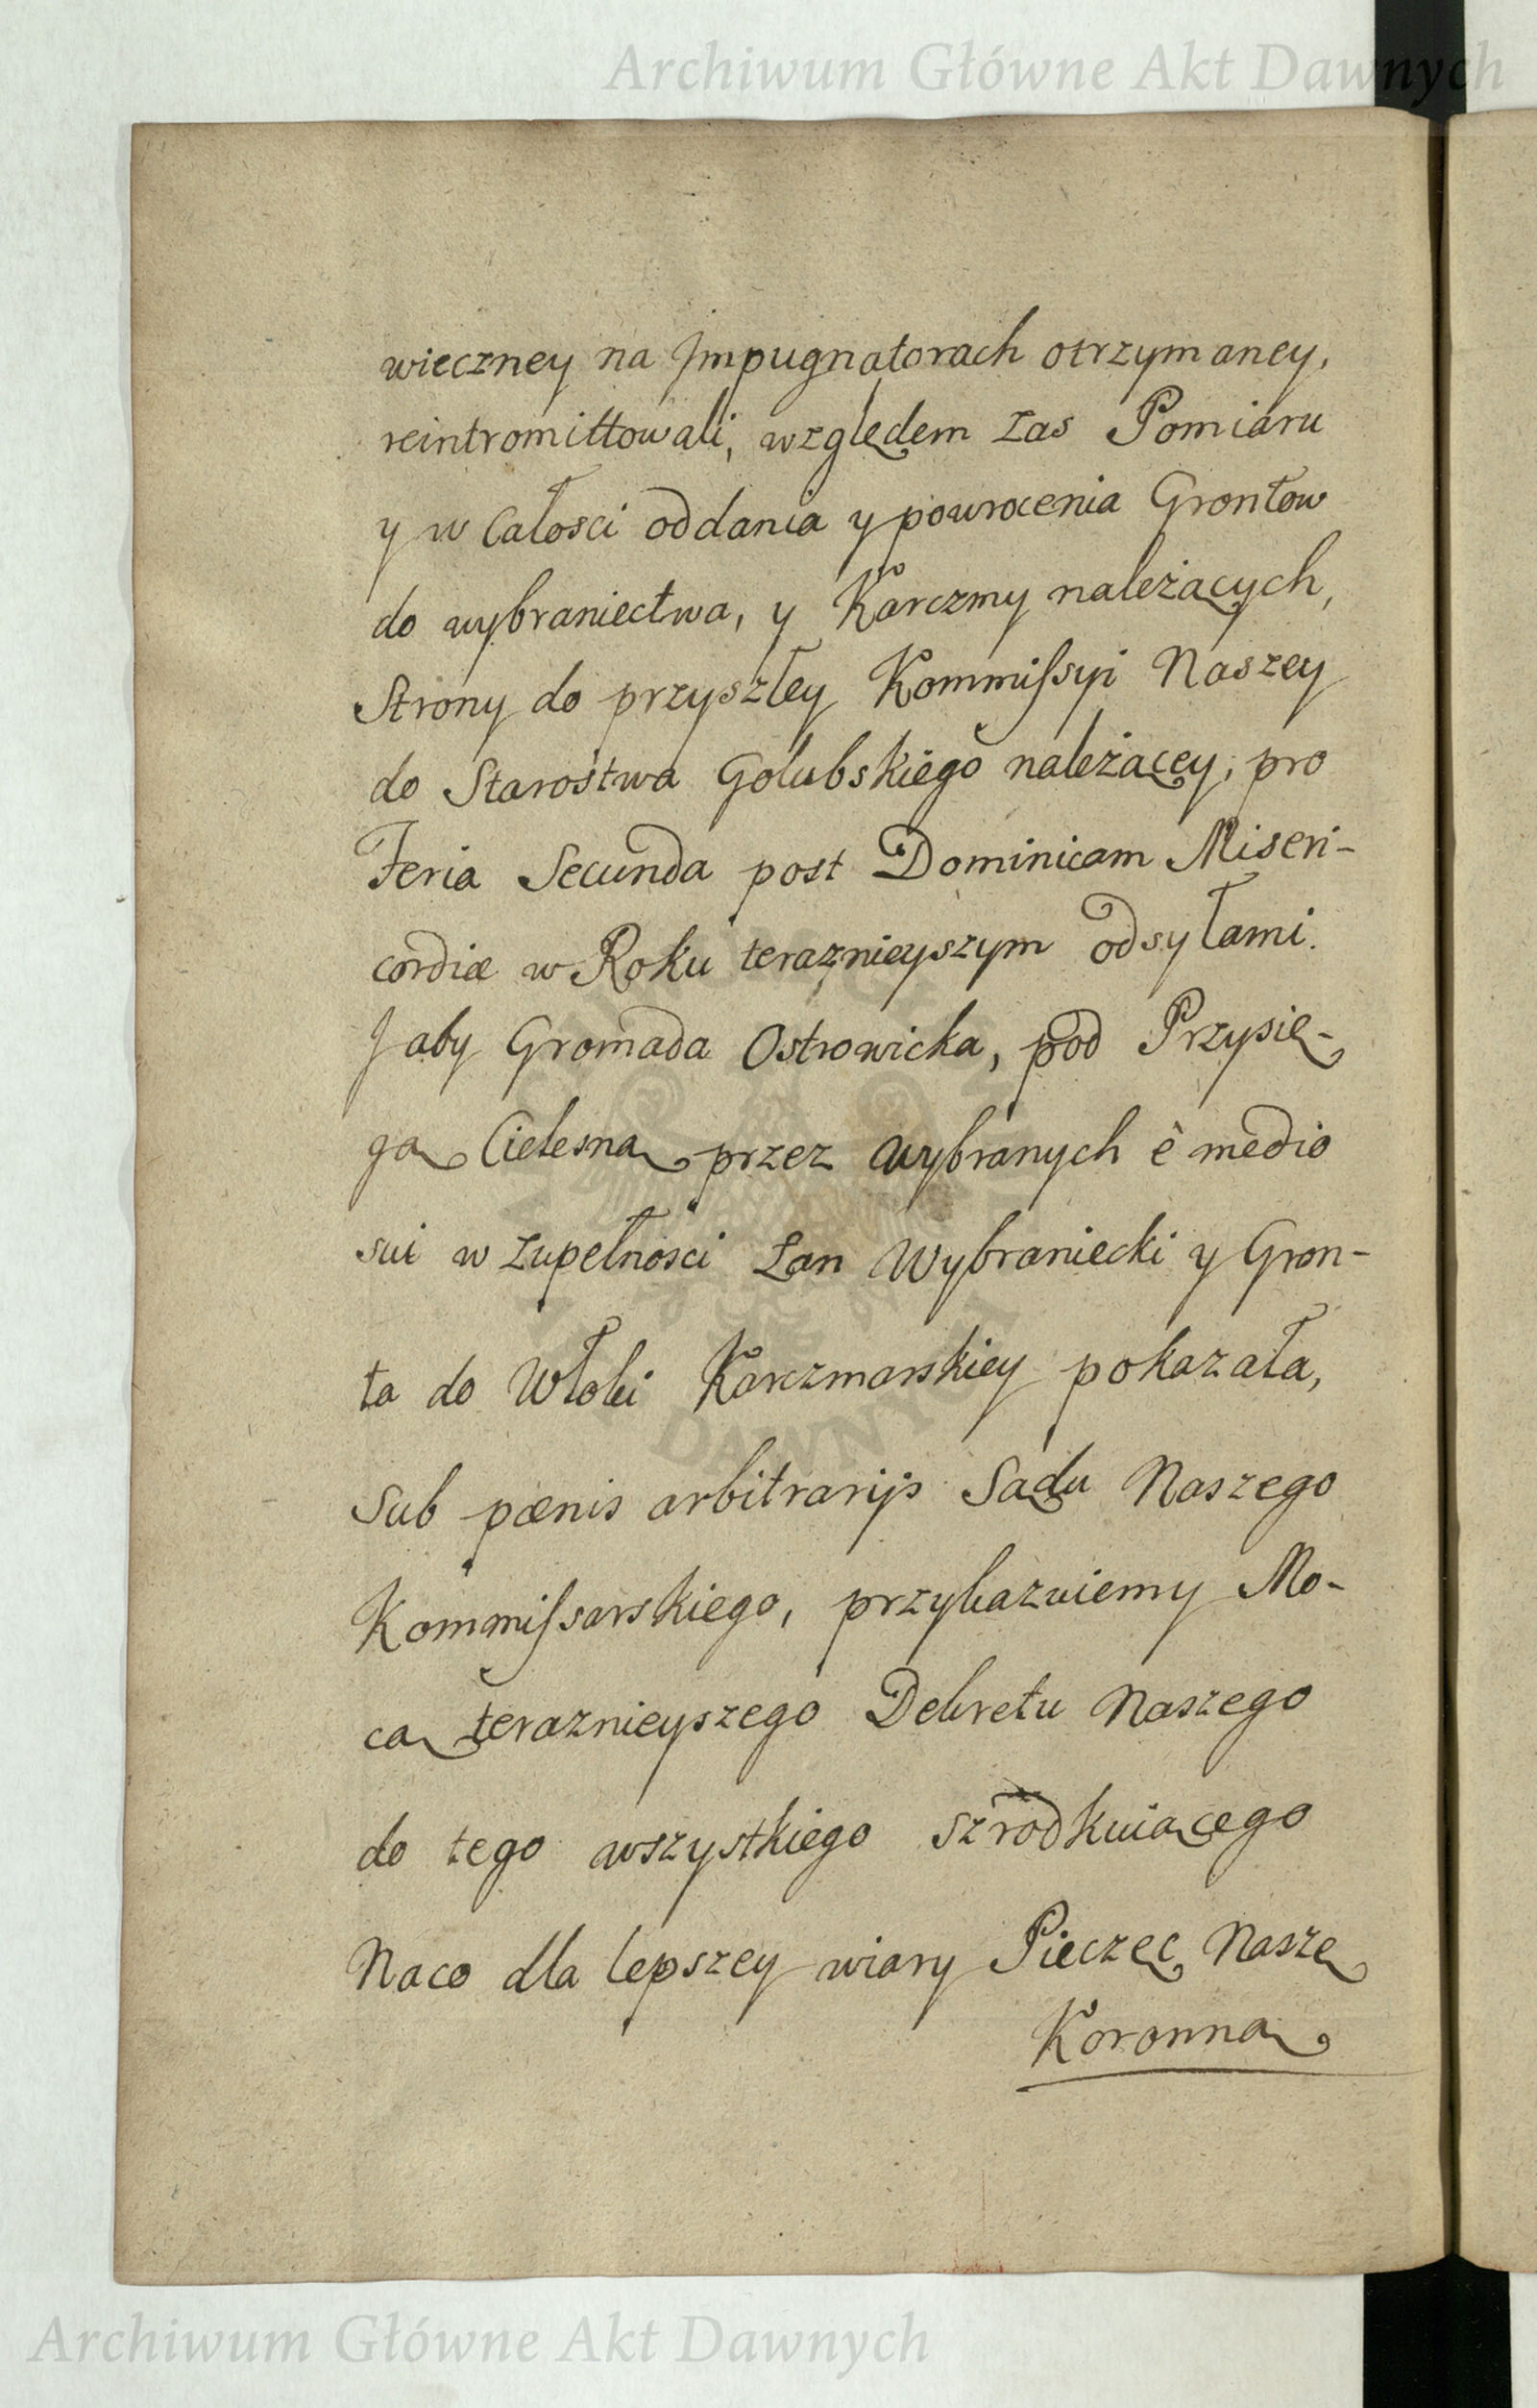 Archiwum Główne Akt Dawnych
wieczney na Jmpugnatorach otrzymaney,
reintromittowali, względem zas Pomiaru
y w Całosci oddania y powrocenia Grontow
do wybraniectwa, y Karczmy należących,
Strony do przyszłey Kommissyi Naszey
do Starostwa Golubskiego należącey, pro
Feria Secunda post Dominicam Miseri-
cordiæ w Roku teraznieyszym odsyłami.
J aby Gromada Ostrowicka, pod Przysię-
gą Cielesną przez wybranych è medio
sui w zupełnosci Łan Wybraniecki y Gron-
ta do Włoki Karczmarskiey pokazała,
Sub pœnis arbitrarijs Sądu Naszego
Kommissarskiego, przykazuiemy Mo-
cą teraznieyszego Dekretu Naszego
do tego wszystkiego szrodkuiącego
Naco dla lepszey wiary Pieczęc Naszę
Koronną
Archiwum Główne Akt Dawnych